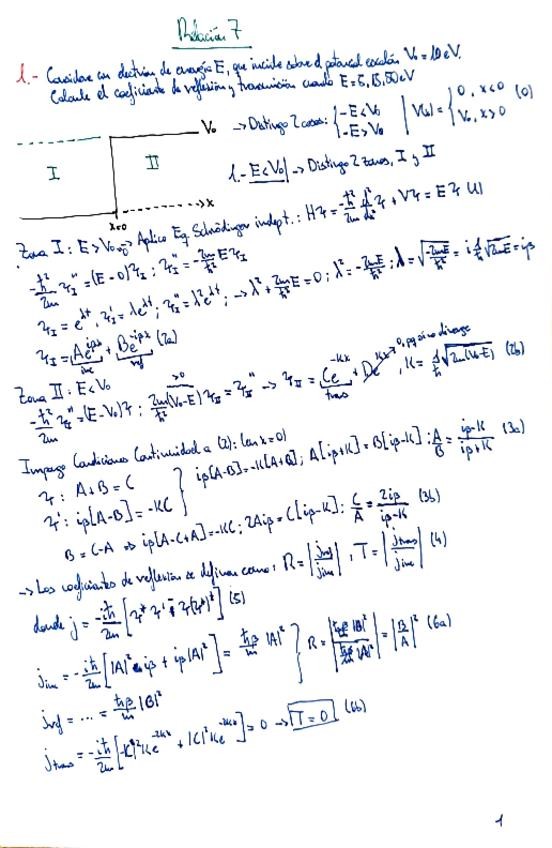 Relación 7
1.- Considere un electrón de energía E, que incide sobre el potencial escalón V₀ = 10 eV.
Calcule el coeficiente de reflexión y transmisión cuando E = 5, 15, 50 eV
V₀ → Distingo 2 casos: { -E<V₀ -E>V₀ | V(x) = { 0, x<0 V₀, x>0 (0)
I II
1.- E<V₀ → Distingo 2 zonas, I y II
x=0 x
Zona I: E > V → Aplico Eq Schrödinger indept.: Hψ = -ħ²/2m d²/dx² ψ + Vψ = Eψ (1)
-ħ²/2m ψ_I'' = (E-0)ψ_I ; ψ_I'' = -2m/ħ² E ψ_I
ψ_I = e^{λt}, ψ_I' = λe^{λt}, ψ_I'' = λ²e^{λt}; → λ² + 2mE/ħ² = 0; λ² = -2mE/ħ²; λ = √(-2mE/ħ²) = i 1/ħ √2mE = iβ
ψ_I = Ae^{iβx} + Be^{-iβx} (2a)
inc ref
Zona II: E<V₀
-ħ²/2m ψ_II'' = (E-V₀)ψ; 2m/ħ² (V₀-E) ψ_II = ψ_II'' → ψ_II = Ce^{-Kx} + De^{Kx} → 0, pq si no diverge, K = 1/ħ √2m(V₀-E) (2b)
>0
trans
Impongo Condiciones Continuidad a (2): (en x=0)
ψ: A+B = C
ψ': iβ[A-B] = -KC } iβ[A-B] = -K[A+B]; A[iβ+K] = B[iβ-K]; A/B = iβ-K/iβ+K (3a)
B = C-A ⇒ iβ[A-C+A] = -KC; 2Aiβ = C[iβ-K]; C/A = 2iβ/iβ-K (3b)
→ Los coeficientes de reflexión se definen como: R = |j_ref/j_inc|, T = |j_trans/j_inc| (4)
donde j = -iħ/2m [ψ* ψ' - ψ(ψ*)'] (5)
j_inc = -iħ/2m [|A|² iβ + iβ|A|²] = ħβ/m |A|² } R = |ħβ/m |B|² / ħβ/m |A|²| = |B/A|² (6a)
j_ref = ... = ħβ/m |B|²
j_trans = -iħ/2m [-|C|²Ke^{-2Kx} + |C|²Ke^{-2Kx}] = 0 → T = 0 (6b)
1